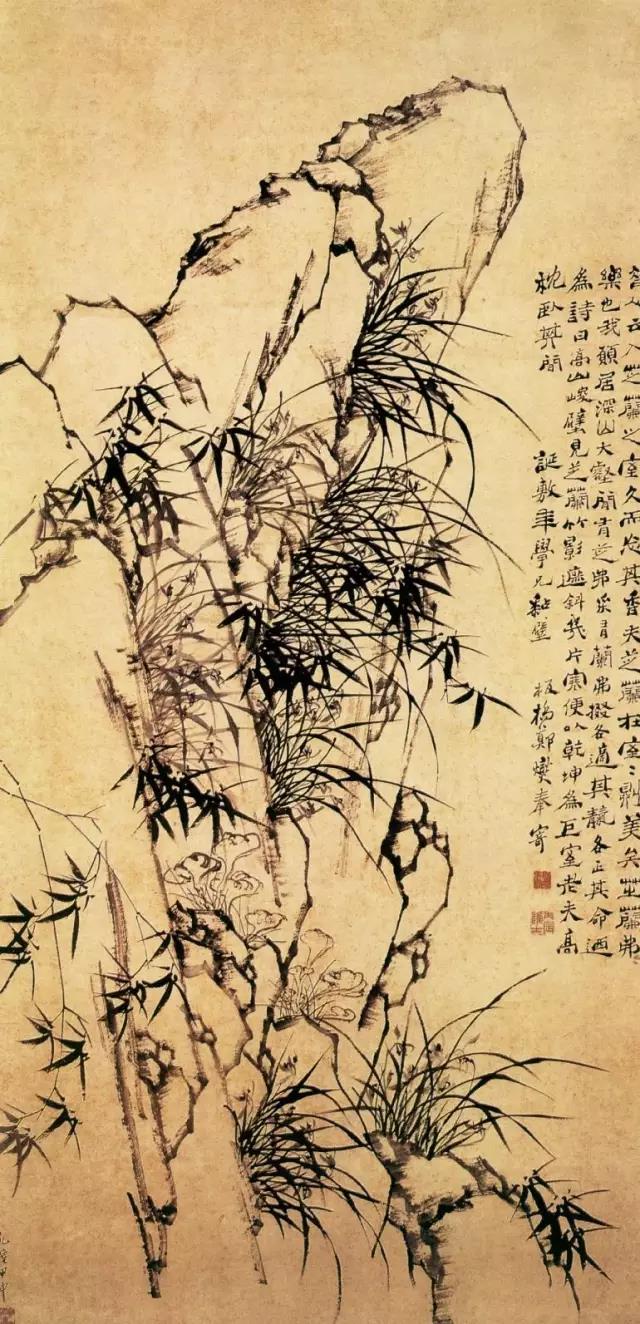 昔人云入芝蘭之室久而忘其香夫芝蘭在室〻則美矣芝蘭弗
樂也我願居深山大壑間有芝弗采有蘭弗掇各適其各正其命迺
為詩曰高山峻壁見芝蘭竹影遮斜幾片寒便以乾坤為巨室老夫高
枕卧其間 誕敷年學兄 璧 板橋鄭燮奉寄